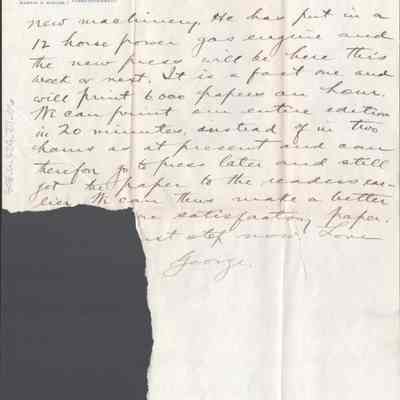 new machinery. He has put in a
12 horse power gas engine and
the new press will be here this
week or next. It is a fast one and
will print 6000 papers an hour.
We can print our entire edition
in 20 minutes, instead of in two
hours as at present and can
therefor go to press later and still
get the paper to the readers ear-
lier. We can thus make a better
satisfactory paper.
ust stop now. Love
George.